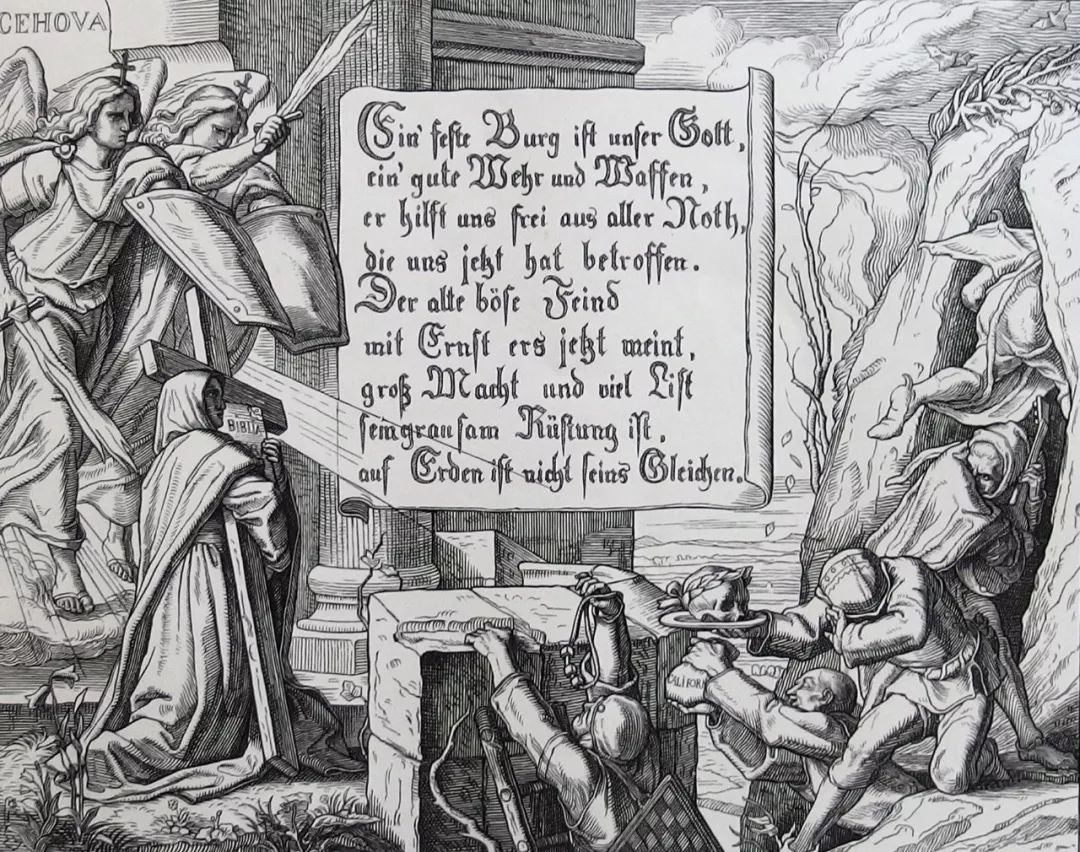 CEHOVA
Ein' feste Burg ist unser Gott,
ein' gute Wehr und Waffen,
er hilft uns frei aus aller Noth,
die uns jetzt hat betroffen.
Der alte böse Feind
mit Ernst ers jetzt meint,
groß Macht und viel List
sein grausam Rüstung ist,
auf Erden ist nicht seins Gleichen.
BIBLIA
CALIFORN